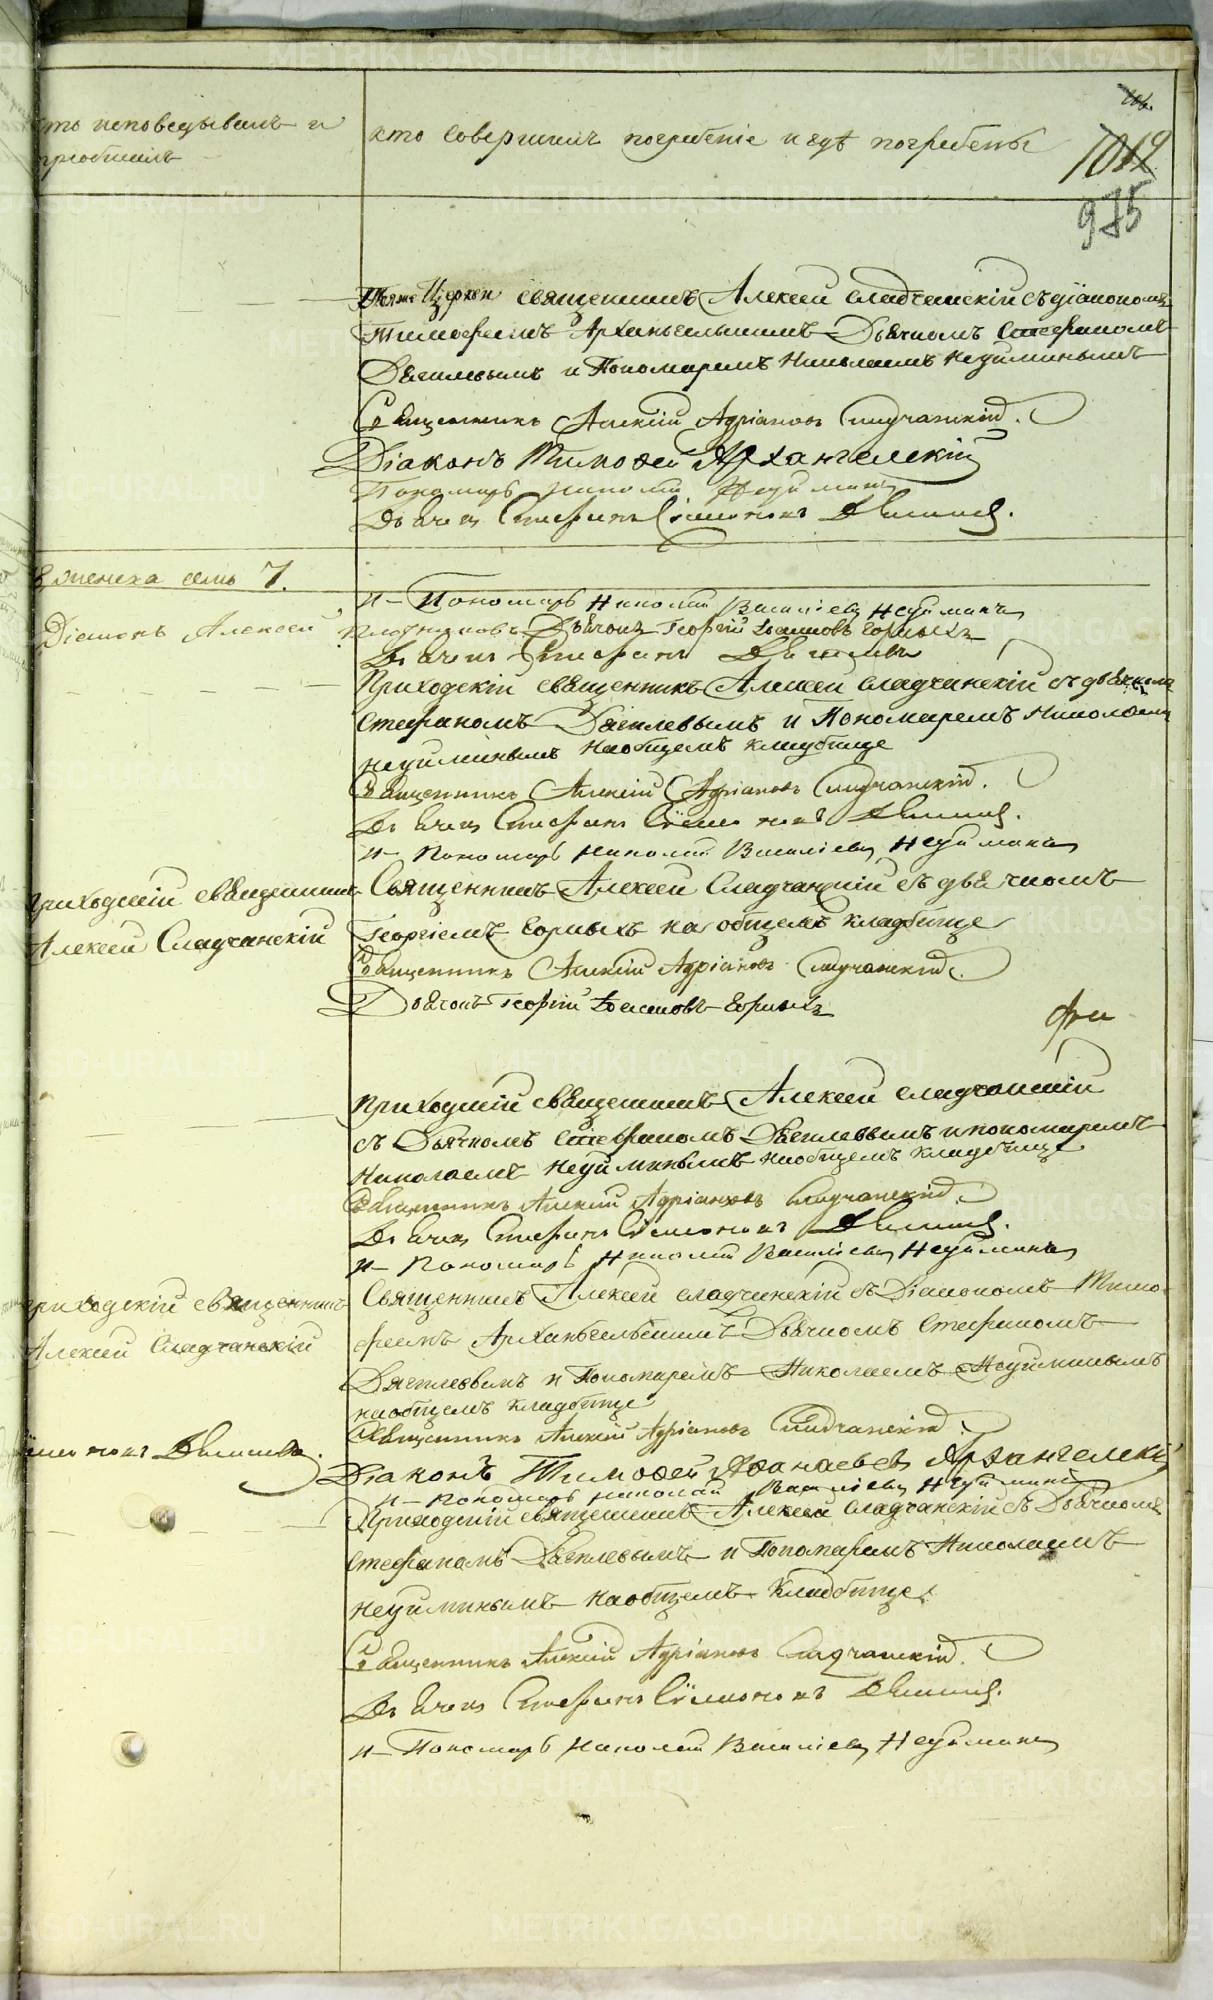 кто исповедывалъ и
кто совершилъ погребеніе и гдѣ погребены
приобщилъ
1012
975
Тояже Церкви священникъ Алексей Сладчанскій съ діакономъ
Тимофеемъ Архангельскимъ Дьячкомъ Стефаномъ
Дягилевымъ и Пономаремъ Николаемъ Неуйминымъ
Священникъ Алексій Адріановъ Сладчанскій.
Діаконъ Тимофей Архангелскій
Пономарь Николай Неуйминъ
Дьячекъ Стефанъ Дягилев.
женска семь 7.
и Пономарь Николай Василіевъ Неуйминъ
Діаконъ Алексей
Дьячокъ Георгій Горныхъ
Дьячекъ Стефанъ Дягилевъ
Приходскій священникъ Алексей Сладчанскій съ дьячкомъ
Стефаномъ Дягилевымъ и Пономаремъ Николаемъ
Неуйминымъ на общемъ кладбище
Священникъ Алексій Адріановъ Сладчанскій.
Дьячекъ Стефанъ Дягилев.
и Пономарь Николай Василіевъ Неуйминъ
приходскій священникъ
Алексей Сладчанскій
Священникъ Алексей Сладчанскій съ дьячкомъ
Георгіемъ Горныхъ на общемъ кладбище
Священникъ Алексій Адріановъ Сладчанскій.
Дьячокъ Георгій Горныхъ
приходскій священникъ Алексей Сладчанскій
съ Дьячкомъ Стефаномъ Дягилевымъ и пономаремъ
Николаемъ Неуйминымъ на общемъ кладбище
Священникъ Алексій Адріановъ Сладчанскій.
Дьячекъ Стефанъ Дягилев.
и Пономарь Николай Василіевъ Неуйминъ
приходскій священникъ
Алексей Сладчанскій
Священникъ Алексей Сладчанскій съ Діакономъ Тимо-
феемъ Архангельскимъ Дьячкомъ Стефаномъ
Дягилевымъ и Пономаремъ Николаемъ Неуйминымъ
на общемъ кладбище
Священникъ Алексій Адріановъ Сладчанскій.
Дягилевъ.
Діаконъ Тимофей Афанасьев Архангелскій
и Пономарь Николай Василіевъ Неуйминъ
Приходскій священникъ Алексей Сладчанскій съ Дьячкомъ
Стефаномъ Дягилевымъ и Пономаремъ Николаемъ
Неуйминымъ на общемъ кладбище
Священникъ Алексій Адріановъ Сладчанскій.
Дьячекъ Стефанъ Дягилев.
и Пономарь Николай Василіевъ Неуйминъ
METRIKI.GASO-URAL.RU